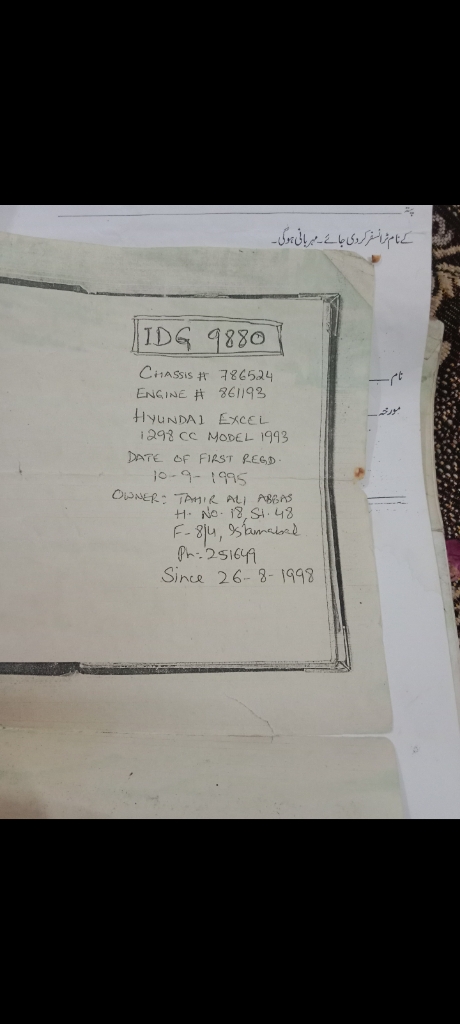 پتہ
کے نام ٹرانسفر کر دی جائے۔ مہربانی ہوگی۔
IDG 9880
CHASSIS # 786524
ENGINE # 861193
HYUNDAI EXCEL
1298 CC MODEL 1993
DATE OF FIRST REGD.
10-9-1995
OWNER: TAHIR ALI ABBAS
H. No. 18, St. 48
F-8/4, Islamabad
Ph:- 251649
Since 26-8-1998
نام
مورخہ